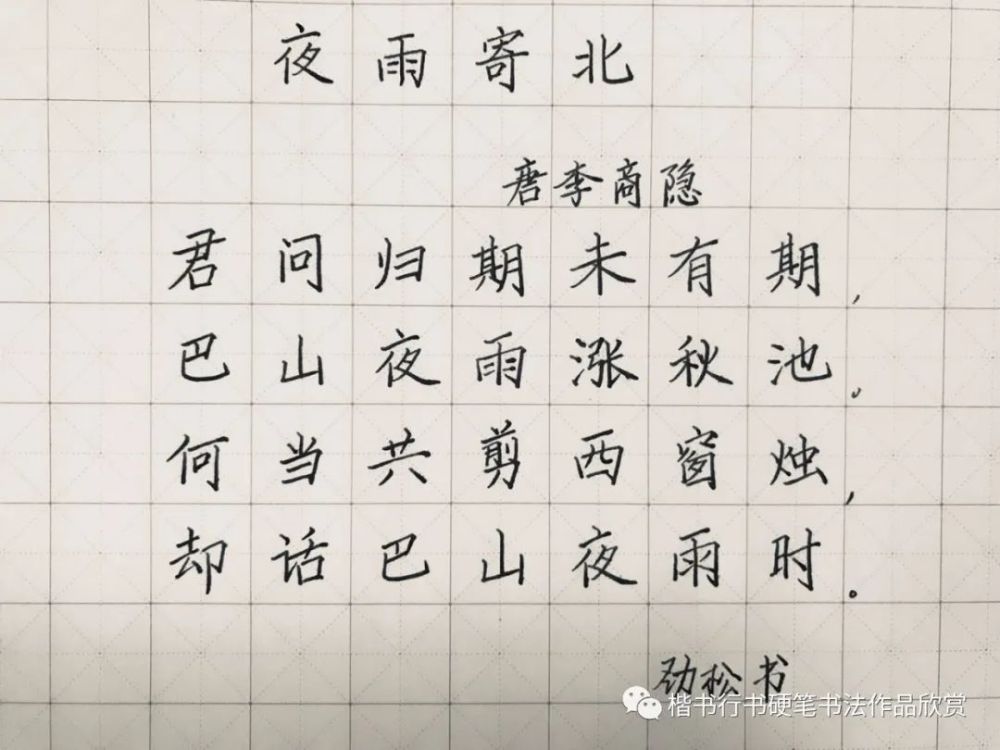 夜雨寄北
唐李商隐
君问归期未有期,
巴山夜雨涨秋池。
何当共剪西窗烛,
却话巴山夜雨时。
劲松书
楷书行书硬笔书法作品欣赏